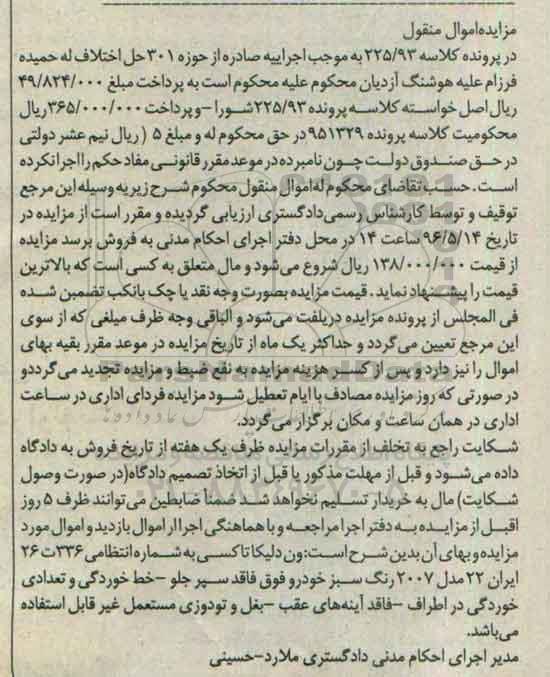 مزایده اموال منقول
در پرونده کلاسه ۲۲۵/۹۳ به موجب اجراییه صادره از حوزه ۳۰۱ حل اختلاف له حمیده
فرزام علیه هوشنگ آزدیان محکوم علیه محکوم است به پرداخت مبلغ ۴۹/۸۲۴/۰۰۰
ریال اصل خواسته کلاسه پرونده ۲۲۵/۹۳ شورا – و پرداخت ۳۶۵/۰۰۰/۰۰۰ ریال
محکومیت کلاسه پرونده ۹۵۱۳۲۹ در حق محکوم له و مبلغ ۵ ( ریال نیم عشر دولتی
در حق صندوق دولت چون نامبرده در موعد مقرر قانونی مفاد حکم را اجرا نکرده
است. حسب تقاضای محکوم له اموال منقول محکوم شرح زیر به وسیله این مرجع
توقیف و توسط کارشناس رسمی دادگستری ارزیابی گردیده و مقرر است از مزایده در
تاریخ ۹۶/۵/۱۴ ساعت ۱۴ در محل دفتر اجرای احکام مدنی به فروش برسد مزایده
از قیمت ۱۳۸/۰۰۰/۰۰۰ ریال شروع می‌شود و مال متعلق به کسی است که بالاترین
قیمت را پیشنهاد نماید. قیمت مزایده بصورت وجه نقد یا چک بانکب تضمین شده
فی المجلس از پرونده مزایده دریلفت می‌شود و الباقی وجه ظرف مبلغی که از سوی
این مرجع تعیین می‌گردد و حداکثر یک ماه از تاریخ مزایده در موعد مقرر بقیه بهای
اموال را نیز دارد و پس از کسر هزینه مزایده به نفع ضبط و مزایده تجدید می‌گردد و
در صورتی که روز مزایده مصادف با ایام تعطیل شود مزایده فردای اداری در ساعت
اداری در همان ساعت و مکان برگزار می‌گردد.
شکایت راجع به تخلف از مقررات مزایده ظرف یک هفته از تاریخ فروش به دادگاه
داده می‌شود و قبل از مهلت مذکور یا قبل از اتخاذ تصمیم دادگاه (در صورت وصول
شکایت) مال به خریدار تسلیم نخواهد شد ضمناً ضابطین می‌توانند ظرف ۵ روز
اقبل از مزایده به دفتر اجرا مراجعه و با هماهنگی اجرا از اموال بازدید و اموال مورد
مزایده و بهای آن بدین شرح است: ون دلیکا تاکسی به شماره انتظامی ۳۳۶ ت ۲۶
ایران ۲۲ مدل ۲۰۰۷ رنگ سبز خودرو فوق فاقد سپر جلو – خط خوردگی و تعدادی
خوردگی در اطراف – فاقد آینه‌های عقب – بغل و تودوزی مستعمل غیر قابل استفاده
می‌باشد.
مدیر اجرای احکام مدنی دادگستری ملارد – حسینی
ParsNamadData